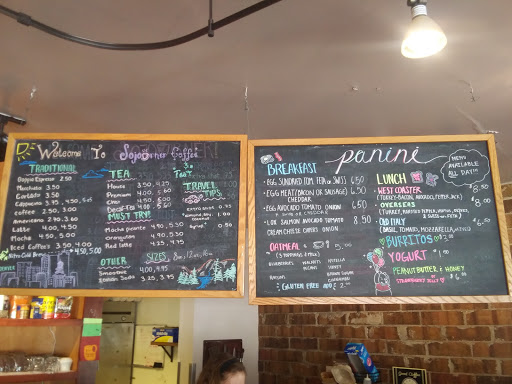 Welcome To Sojourner Coffee
TRADITIONAL
Doppio Espresso 2.50
Macchiato 3.50
Cortado 3.50
Cappuccino 3.75, 4.50, 5.00
Coffee 2.50, 3.00
Americano 2.70, 3.00
Latte 4.00, 4.50
Mocha 4.50, 5.00
Iced Coffee's 3.50 4.00
Nitro Cold Brew 4.50, 5.00
TEA
House 3.50, 4.25
Premium 4.00, 5.00
Chai
MUST TRY!
Mocha picante 4.90, 5.50
Orangutan 4.90, 5.50
Red latte 4.25, 4.75
OTHER
Smoothie 4.00, 4.95
Italian Soda 3.25, 3.75
TRAVEL
TIPS
Extra shot 0.75
1.00
Syrup 0.50
SIZES 8oz, 12oz, 16oz
panini
MENU
AVAILABLE
ALL DAY!!
BREAKFAST
EGG SUNDRIED TOM, FETA OR SWISS 6.50
EGG MEAT (BACON OR SAUSAGE) 6.50
CHEDDAR
EGG AVOCADO TOMATO ONION 6.50
LOX SALMON AVOCADO TOMATO 8.50
CREAM CHEESE CAPERS ONION
OATMEAL
BLUEBERRIES WALNUTS
PECANS
RAISINS
NUTELLA
HONEY
BROWN SUGAR
CINNAMON
GLUTEN FREE
LUNCH
WEST COASTER
(TURKEY, BACON, AVOCADO, PEPPER JACK)
CLEAVERS
OLD ITALY
(BASIL, TOMATO, MOZZARELLA
BURRITOS
YOGURT
PEANUT BUTTER & HONEY
STRAWBERRY JELLY